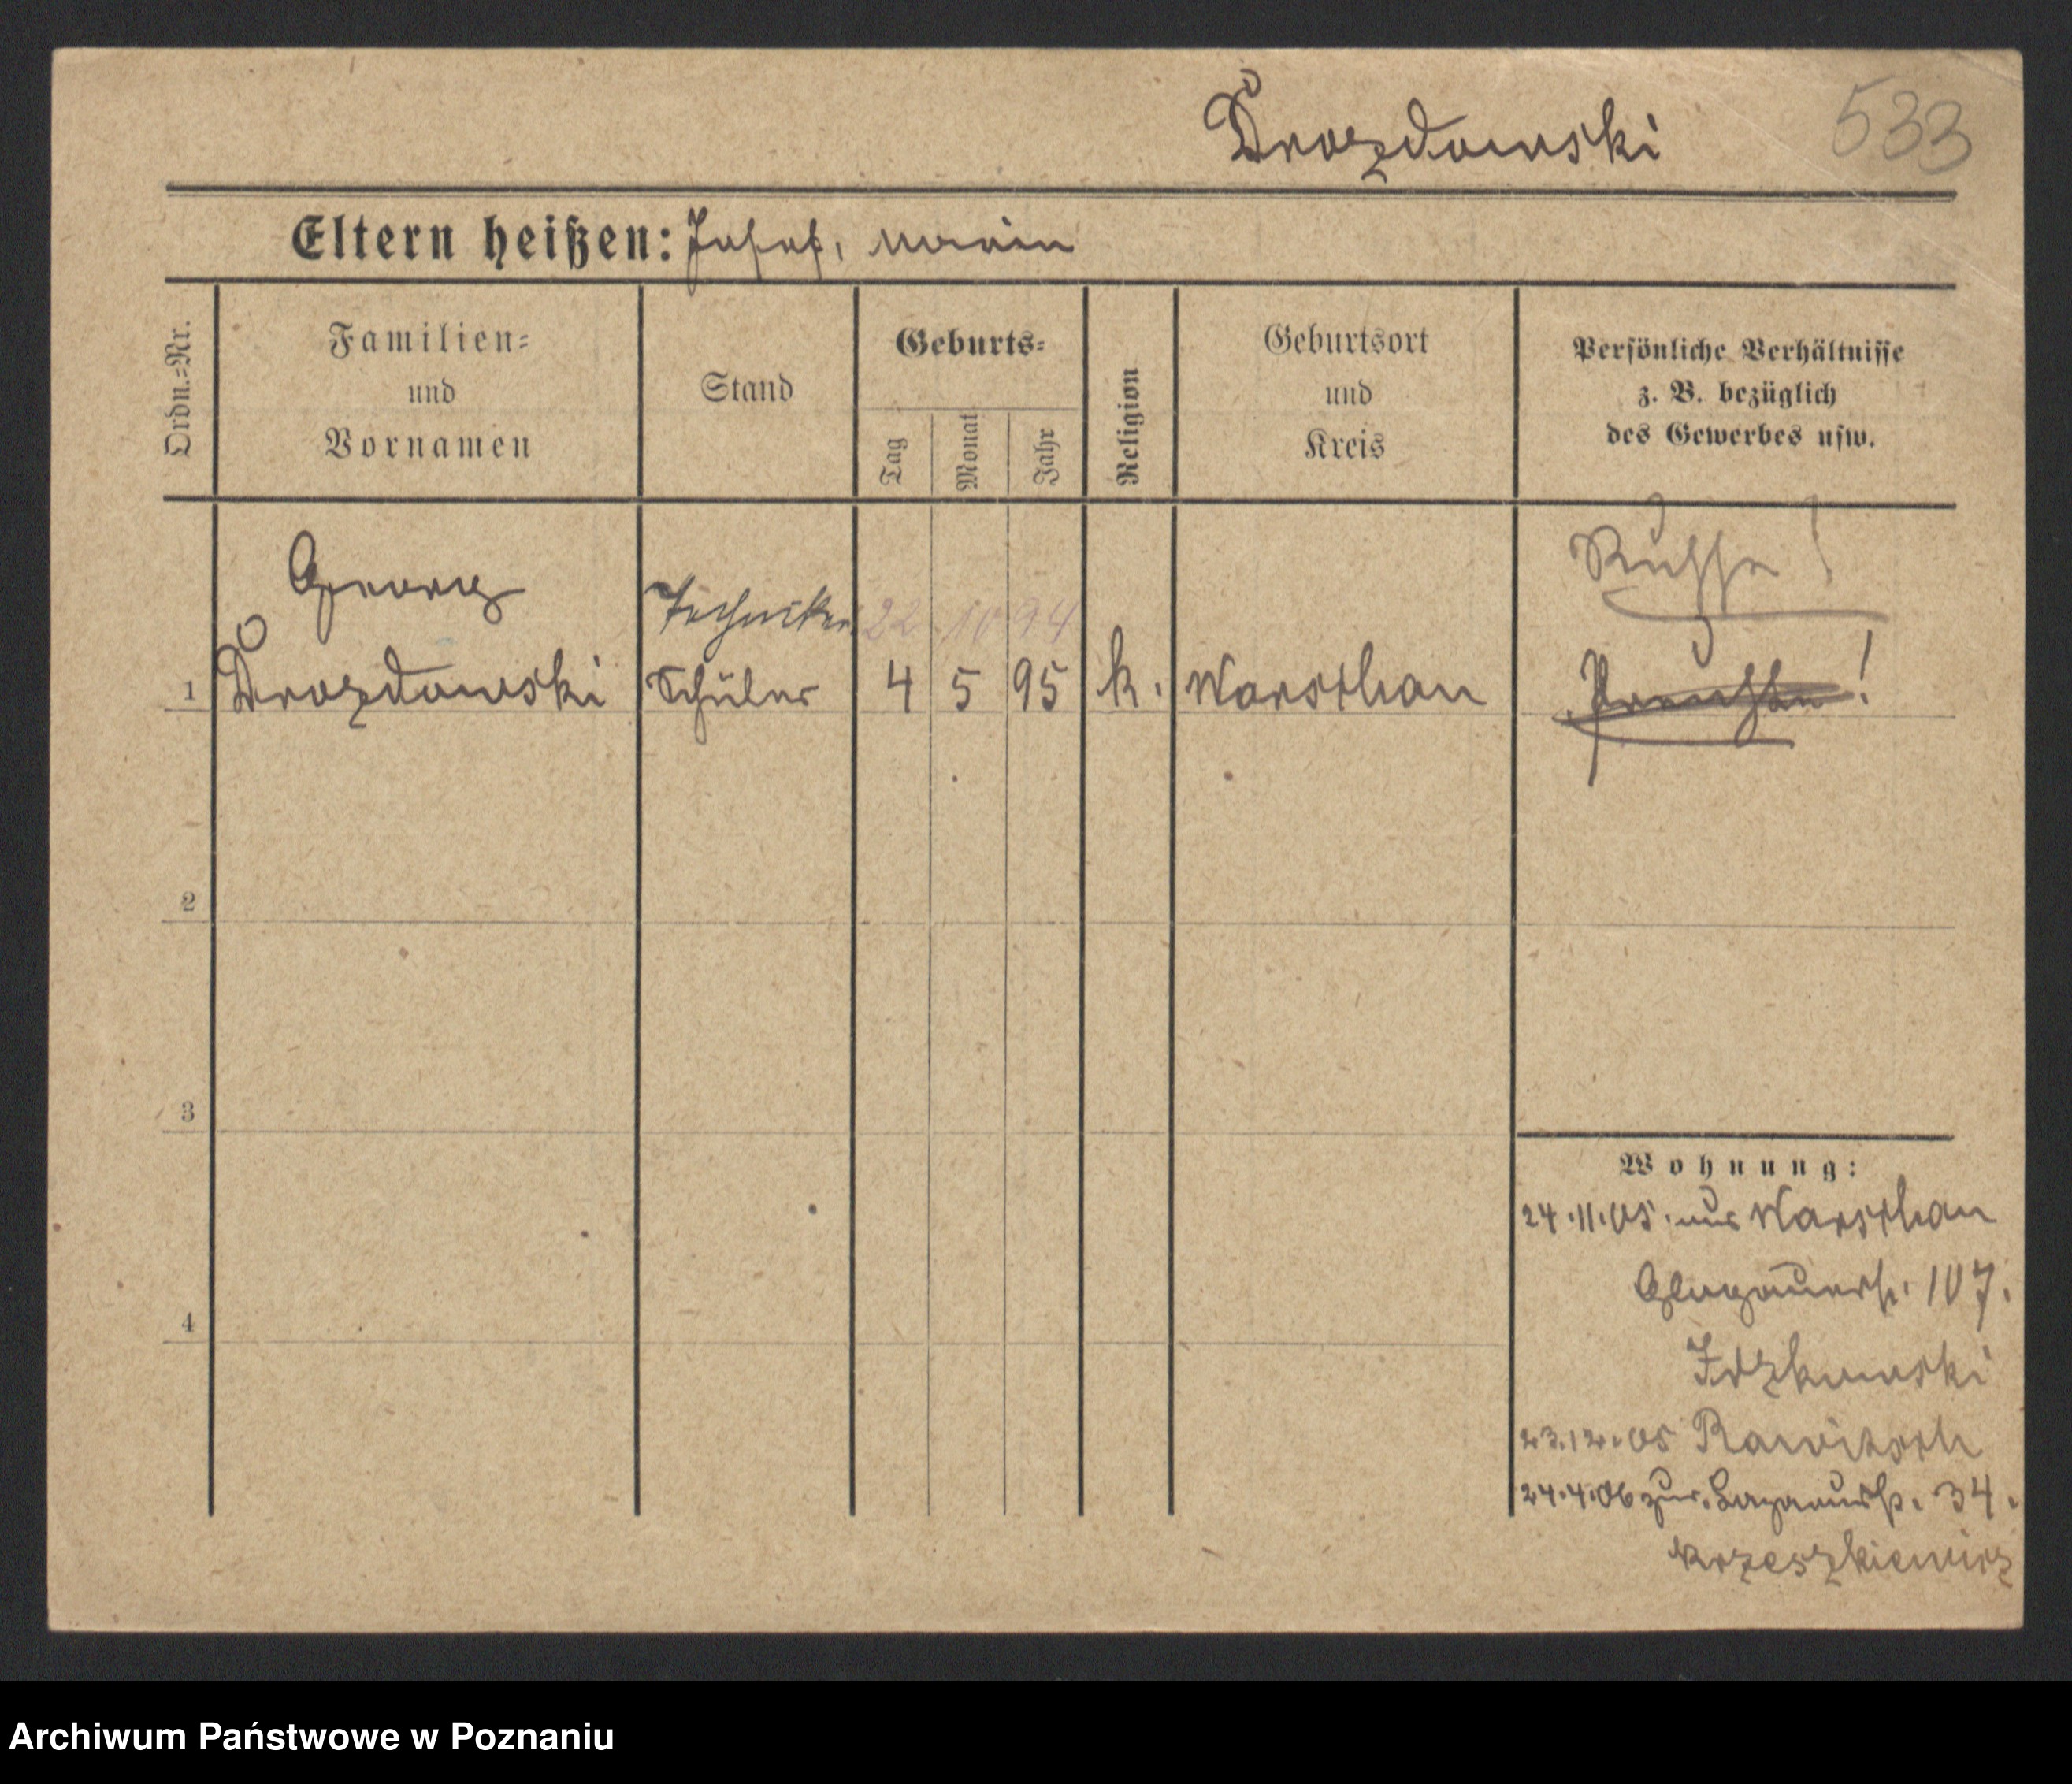 Drozdowski
533
Eltern heißen: Josef, Maria
Ordn.=Nr.
Familien=
und
Vornamen
Stand
Geburts=
Tag
Monat
Jahr
Religion
Geburtsort
und
Kreis
Persönliche Verhältnisse
z. B. bezüglich
des Gewerbes usw.
Georg
Techniker 22 10 94
Russe!
1 Drozdowski Schüler 4 5 95 k. Warschau
Preusse!
2
3
4
Wohnung:
24.11.05. aus Warschau
Glogauerstr. 107.
23.12.05 Rawitsch
24.4.06 zur. 34.
Krzeszkiewicz
Archiwum Państwowe w Poznaniu